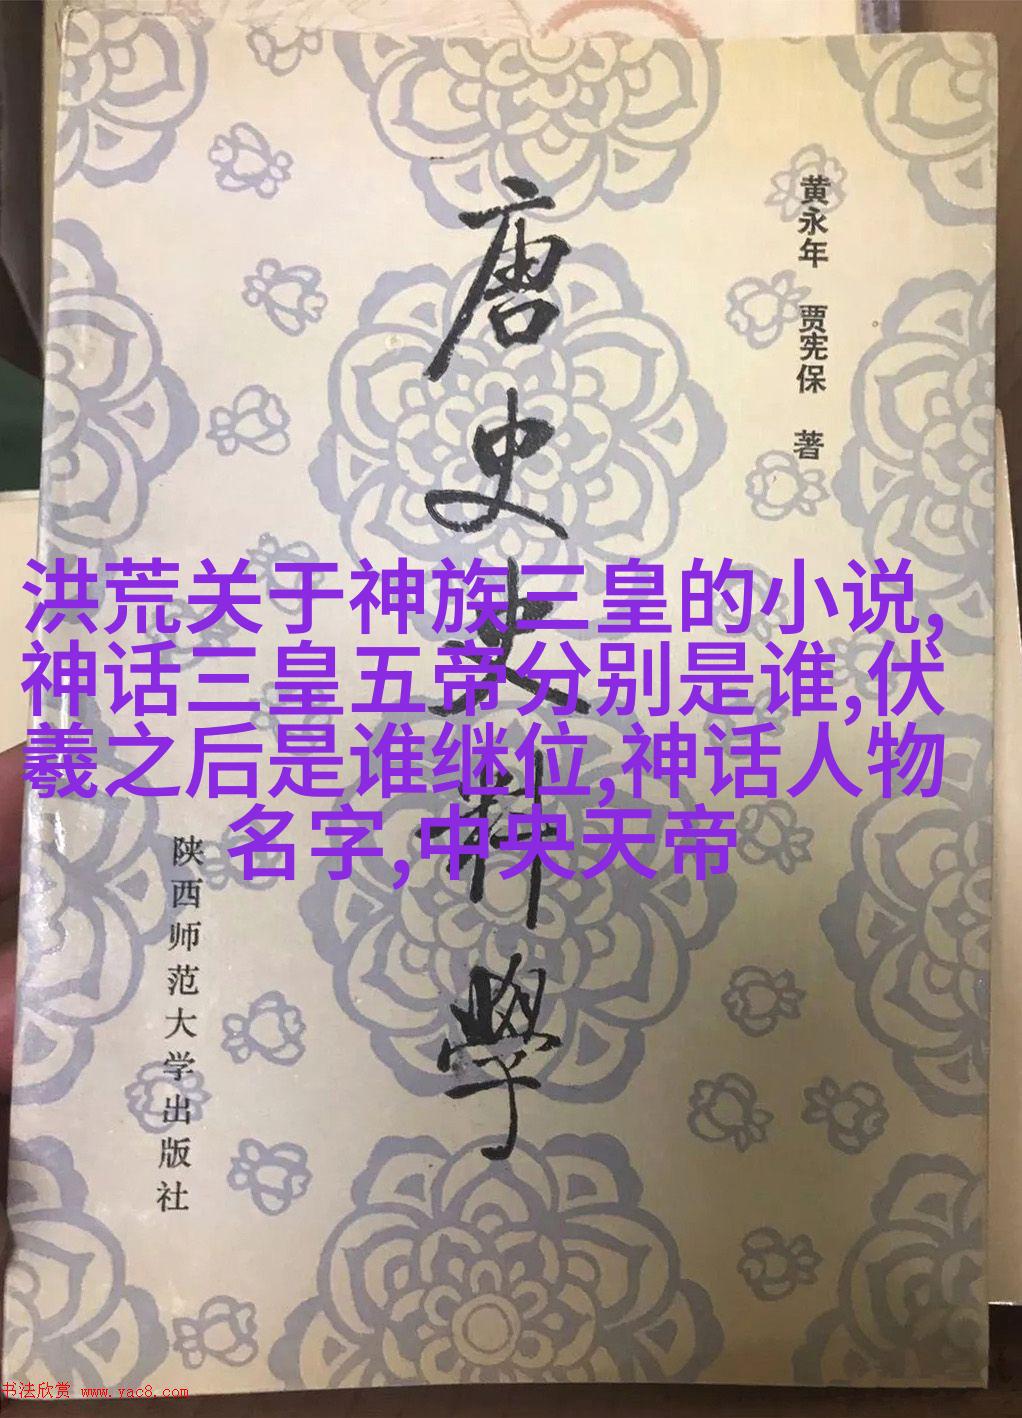 黄永年 贾宪保 著
唐史史料学
洪荒关于神族三皇的小说,
神话三皇五帝分别是谁,伏
羲之后是谁继位,神话人物
名字,中央天帝
陕西师范大学出版社
书法欣赏 www.yac8.com